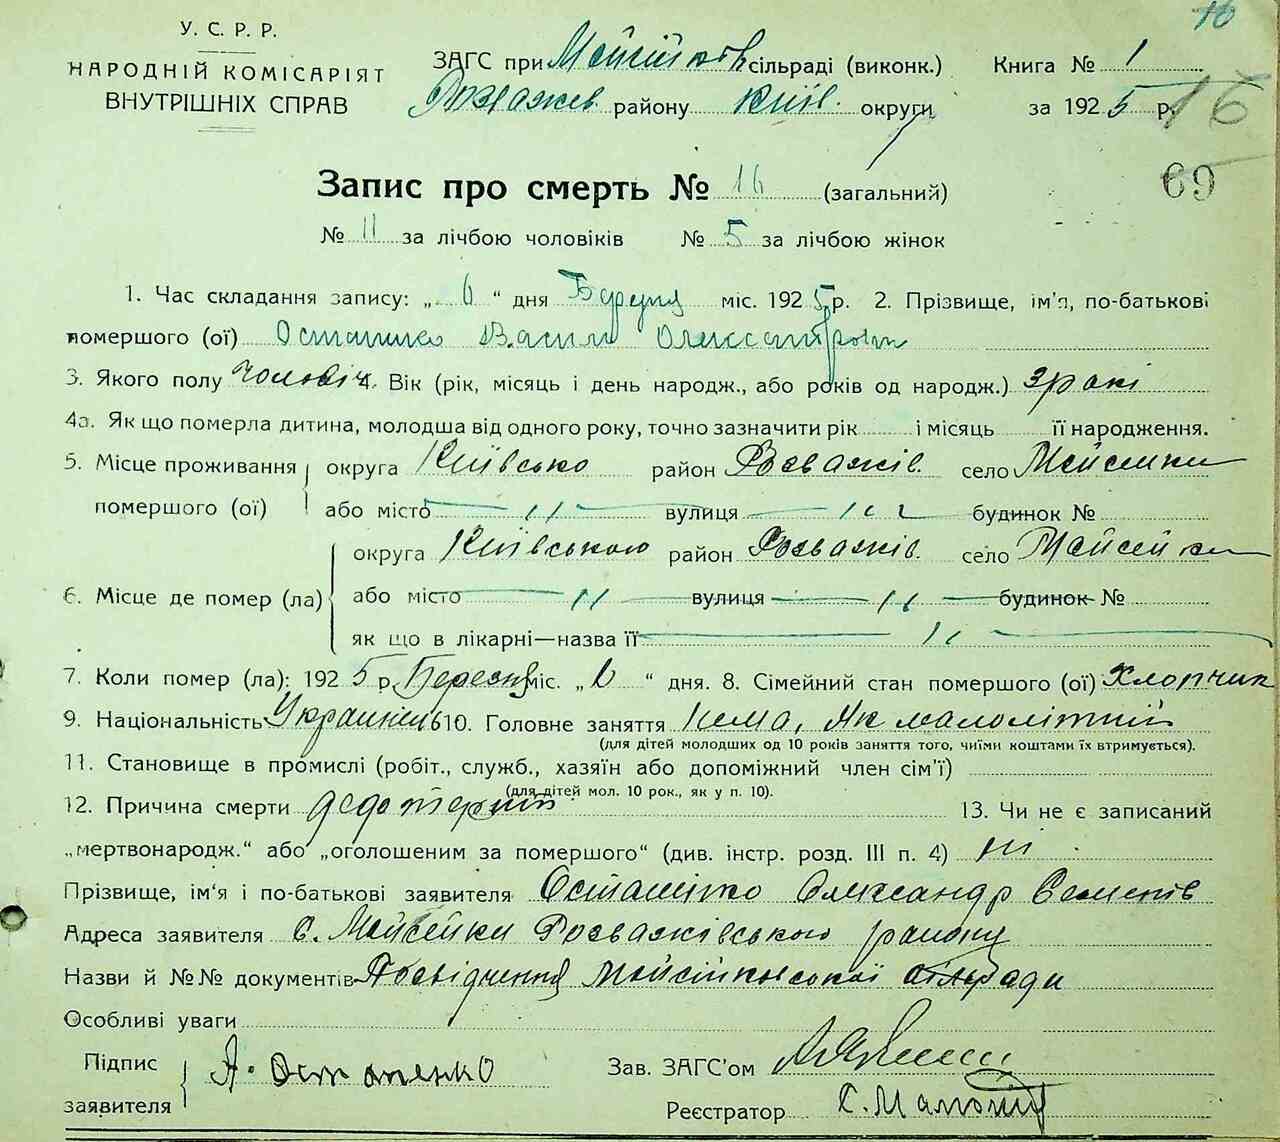 16
У. С. Р. Р.
НАРОДНІЙ КОМІСАРІЯТ
ВНУТРІШНІХ СПРАВ
ЗАГС при Мойсійків сільраді (виконк.) Книга № 1
Розважев. району Київ. округи за 1925 р. 16
Запис про смерть № 16 (загальний) 69
№ 11 за лічбою чоловіків № 5 за лічбою жінок
1. Час складання запису: „6“ дня міс. 1925 р. 2. Прізвище, ім'я, по-батькові
помершого (ої) Остапенко Василь Олександров
3. Якого полу Чоловіч. 4. Вік (рік, місяць і день народж., або років од народж.) 3 роки
4а. Як що померла дитина, молодша від одного року, точно зазначити рік і місяць її народження.
5. Місце проживання округа Київсько район Розважів. село Мойсейки
помершого (ої) або місто —〃— вулиця —〃— будинок №
округа Київською район Розважів. село Мойсейки
6. Місце де помер (ла) або місто —〃— вулиця —〃— будинок №
як що в лікарні—назва її —〃—
7. Коли помер (ла): 1925 р. Березня міс. „6“ дня. 8. Сімейний стан помершого (ої) Хлопчик
9. Національність Українець 10. Головне заняття Нема, як малолітній
(для дітей молодших од 10 років заняття того, чиїми коштами їх втримується).
11. Становище в промислі (робіт., служб., хазяїн або допоміжний член сім'ї)
(для дітей мол. 10 рок., як у п. 10).
12. Причина смерти 13. Чи не є записаний
„мертвонародж.“ або „оголошеним за помершого“ (див. інстр. розд. III п. 4) ні
Прізвище, ім'я і по-батькові заявителя Остапенко Олександр Семенів
Адреса заявителя с. Мойсейки Розважівського району
Назви й №№ документів Посвідчення Мойсійківської сільради
Особливі уваги
Підпис
заявителя А. Остапенко
Зав. ЗАГС'ом
Реєстратор